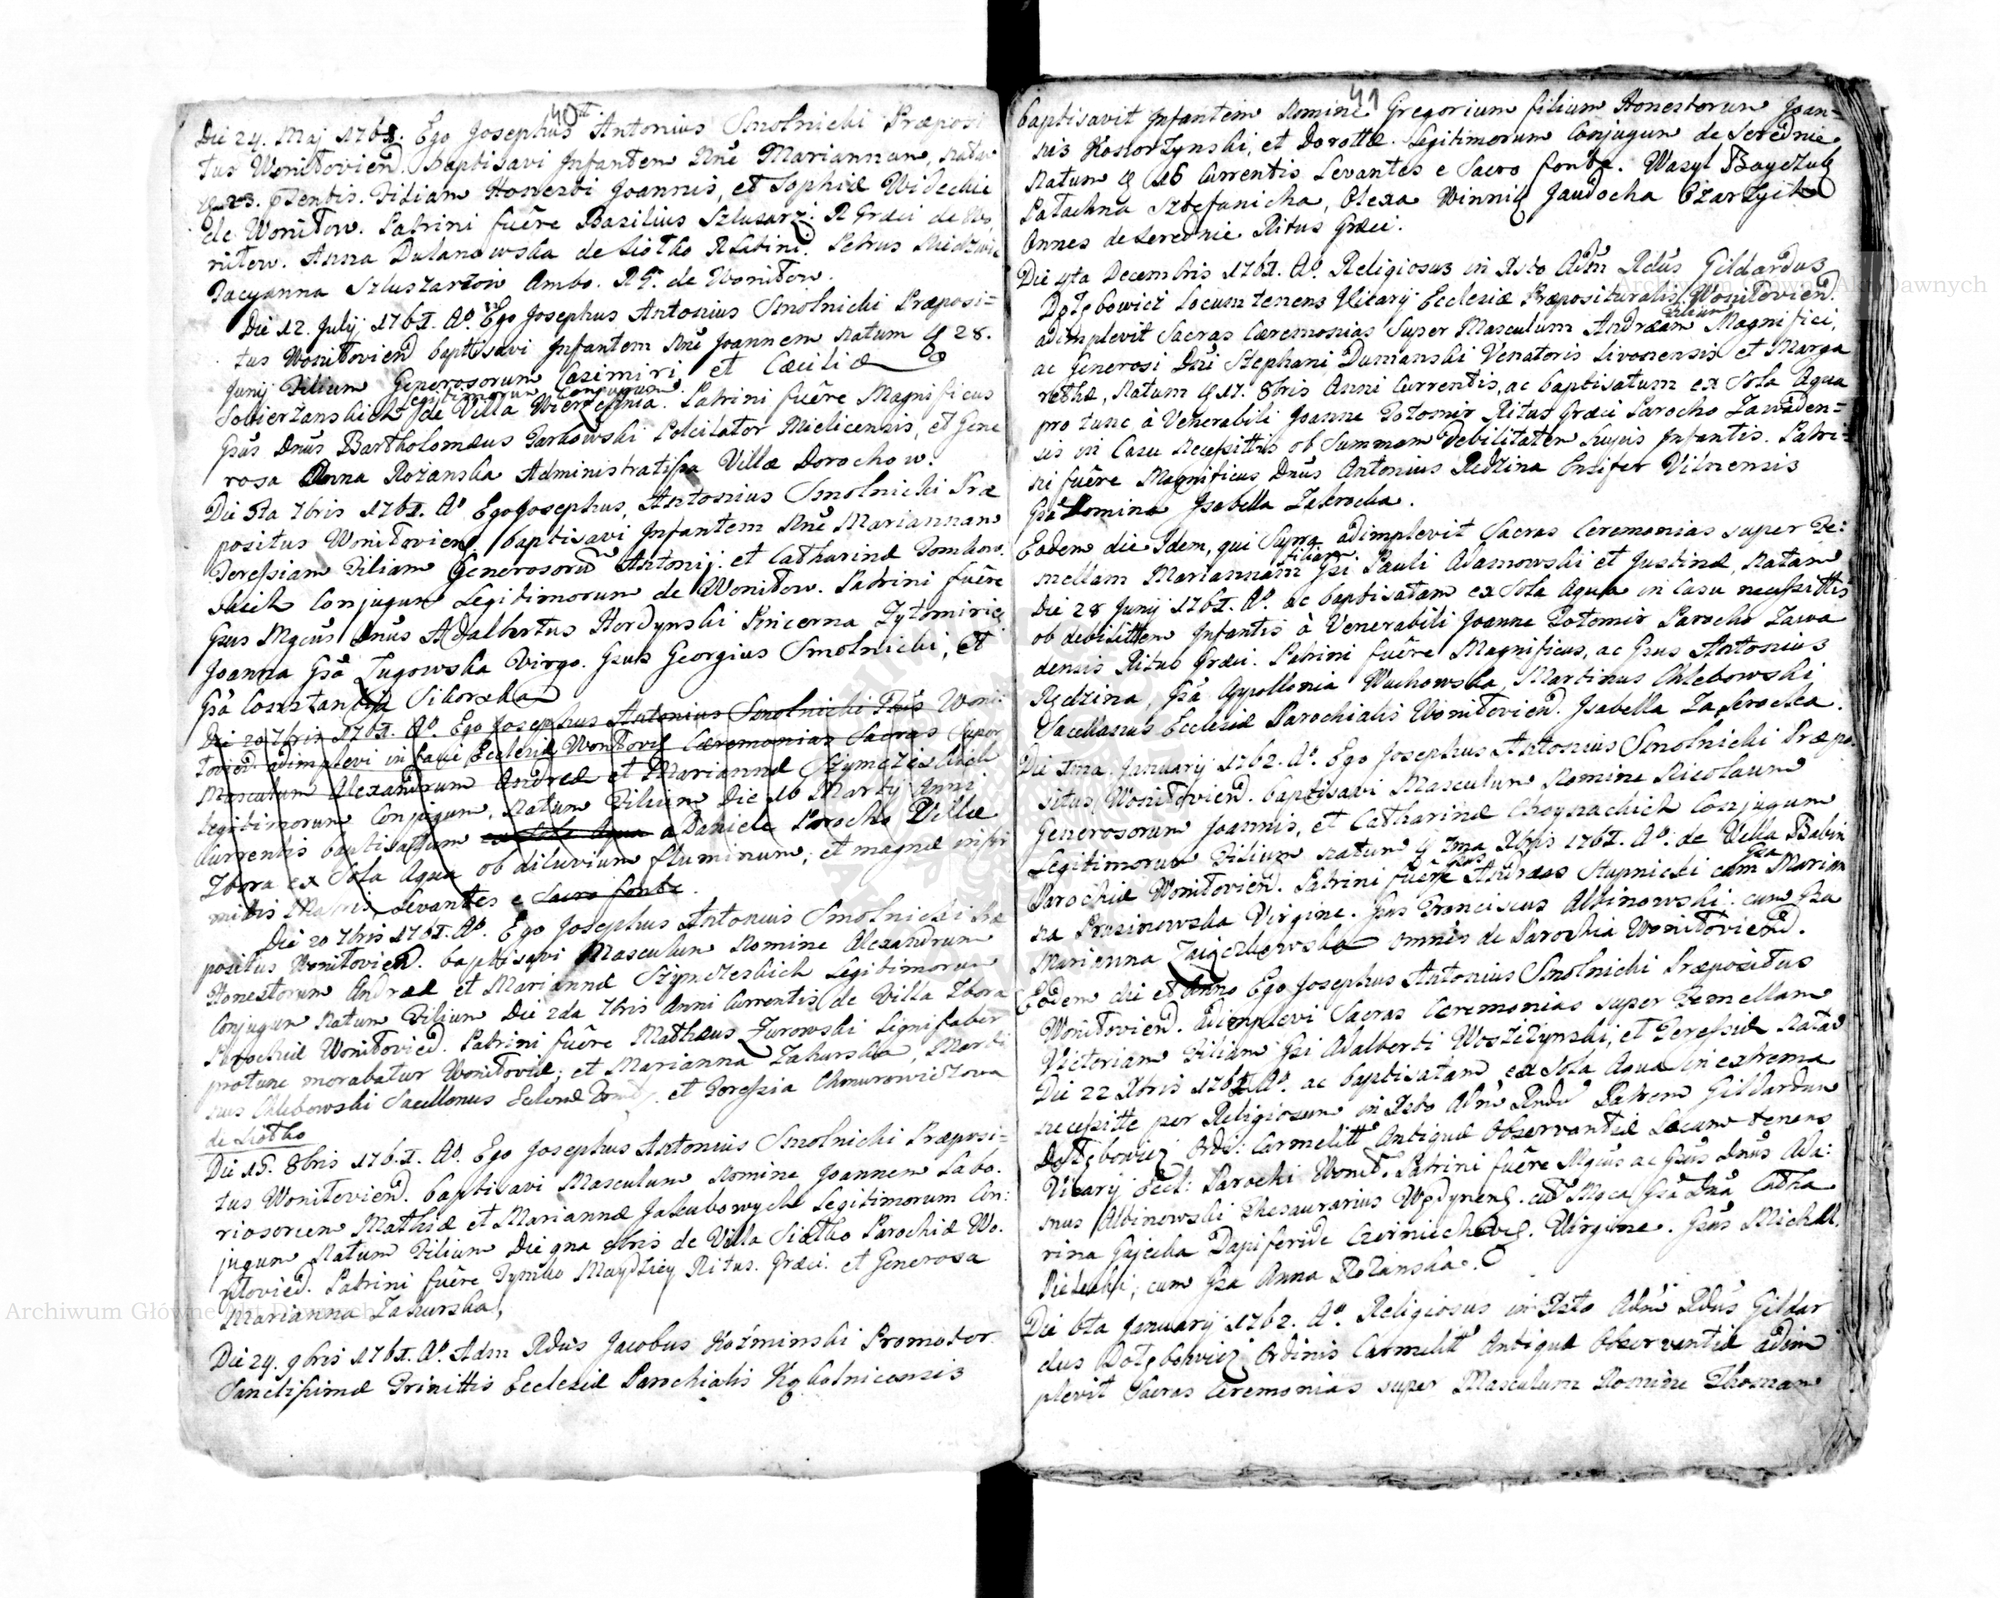 40
Die 24. Maj 1761. Ego Josephus Antonius Smolnicki Præposi
tus Wonitovien̄. Baptisavi Infantem Nn̄e Mariannam, natam
23. Filiam Honesti Joannis, et Sophiæ Widechii
de Wonitow. Patrini fuêre Basilius Szlusarz R Græci de Wo,
nitow. Anna Dulanowska de Siołko R Latini. Petrus
Tacyanna Szluszarzow Ambo. R. G. de Wonitow.
Die 12. July 1761. Aº. Ego Josephus Antonius Smolnicki Præposi=
tus Wonitovien̄ baptisavi Infantem Nn̄e Joannem natum 28.
Junij Filium Generosorum Casimiri et Cæciliæ
legitimorum Conjugum
de Villa Patrini fuêre Magnificus
Gsus Dnus Bartholomæus Jarkowski Mielicensis, et Gene
rosa Anna Rozanska Administratissa Villæ Dorochow.
Die 5ta 7bris 1761. Aº Ego Josephus, Antonius Smolnicki Præ
positus Wonitovien̄ baptisavi Infantem Nn̄e Mariannam
Teressiam Filiam Generosorū Antonij. et Catharinæ Tomkow.
skich Conjugum Legitimorum de Wonitow. Patrini fuêre
Gsus Mgcus Dnus Adalbertus Hordynski Pincerna Zytomirien
Joanna Gsa Ługowska Virgo. Gsus Georgius Smolnicki, et
Gsa Constantia Sikorska
Die 20 7bris 1761. Aº. Ego Josephus Antonius Smolnicki Woni:
tovien̄ adimplevi in facie Ecclesiæ Wonitovien Cæremonias Sacras super
Masculum Alexandrum Andreæ et Mariannæ Szymczeskich
Legitimorum Conjugum, Natum Filium Die 16 Martij Anni
Currentis baptisatum ex Sola Aqua a Daniele Parocho Villæ
Zbora ex Sola Aqua ob diluvium fluminum; et magnæ infir
mitis Matris, Levantes e Sacro fonte.
Die 20 7bris 1761. Aº. Ego Josephus Antonius Smolnicki Præ
positus Wonitovien̄. baptisavi Masculum Nomine Alexandrum
Honestorum Andreæ et Mariannæ Szymczeskich Legitimorum
Conjugum Natum Filium Die 2da 7bris Anni Currentis de Villa Zbora
Parochiæ Wonitovien̄. Patrini fuêre Mathæus Zurowski Lignifaber
protunc morabatur Wonitoviæ; et Marianna Zakurska, Marti
nus Chlebowski Sacellanus et Teressia Chmurowiczowa
de Siołko
Die 15. 8bris 1761. Aº. Ego Josephus Antonius Smolnicki Præposi=
tus Wonitovien̄. baptisavi Masculum Nomine Joannem Labo.
riosorum Mathiæ et Mariannæ Jakubowych Legitimorum Con:
jugum Natum Filium Die 9na 8bris de Villa Siołko Parochiæ Wo.
nitovien̄. Patrini fuêre Tymko Ritus Græci. et Generosa
Marianna Zakurska,
Die 24. 9bris 1761. Aº. Adm Rdus Jacobus Kozminski Promotor.
Sanctissimæ Trinittis Ecclesiæ Parochialis
41
baptisavit Infantem Nomine Gregorium filium Honestorum Joan=
nis Kostorzynski, et Dorottæ. Legitimorum Conjugum de Serednie
Natum 16 Currentis Levantes e Sacro fonte. Wasyl
Palachna Sztefanicha, Olexa Winnik Jaudocha
Omnes de Serednie Ritus Græci.
Die 4ta Decembris 1761. Aº. Religiosus in Xsto Adm Rdus Gildardus
Dołębowicz Locumtenens Vicarij Ecclesiæ Præposituralis Wonitovien̄.
filium
adimplevit Sacras Cæremonias Super Masculum Andræam Magnifici,
ac Generosi Dni Stephani Dumanski Venatoris Livonensis et Marga
rethæ, Natum 17. 8bris Anni Currentis, ac baptisatum ex Sola Aqua
pro tunc à Venerabili Joanne Potomir Ritus Græci Parocho Zawaden=
sis in Casu Necessittis ob Summam Debilitatem hujus Infantis. Patri=
ni fuêre Magnificus Dnus Antonius Redzina Ensifer Vilnensis
Gsa Domina Isabella Zakrocka.
Eodem die Idem, qui Supra adimplevit Sacras Ceremonias super Fe:
filiam
mellam Mariannam Gsi Pauli Adamowski et Justinæ, Natam
Die 28 Junij 1761. Aº. ac baptisatam ex Sola Aqua in Casu necessittis
ob debilittem Infantis à Venerabili Joanne Potomir Parocho Zawa
densis Ritus Græci. Patrini fuêre Magnificus, ac Gsus Antonius
Redzina, Gsa Appollonia Wuchowska, Martinus Chlebowski
Sacellanus Ecclesiæ Parochialis Wonitovien̄. Isabella Zakrocka.
Die 1ma January 1762. Aº. Ego Josephus Antonius Smolnicki Præpo.
situs Wonitovien̄. baptisavi Masculum Nomine Nicolaum
Generosorum Joannis, et Catharinæ Choynackich Conjugum
Legitimorum Filium natum 7ma Xbris 1761. Aº: de Villa Babin
Parochiæ Wonitovien̄. Patrini fuêre Gsus Andreas Stupnicki cum Gsa Marian
na Prusinowska Virgine. Gsus Franciscus Albinowski: cum Gsa
Marianna Zaiączkowska omnes de Parochia Wonitovien̄.
Eodem die et Anno Ego Josephus Antonius Smolnicki Præpositus
Wonitovien̄. Adimplevi Sacras Ceremonias super Femellam
Victoriam Filiam Gsi Adalberti Woszczynski, et Teressiæ Natas
Die 22 Xbris 1761 Aº. ac baptisatam ex Sola Aqua in extrema
necessitte per Religiosum in Xsto Adm Rndū Patrem Gildardum
Dołębowicz Ordi: Carmelitt Antiquæ Observantiæ Locum tenens
Vicarij Eccl: Parochi Wonit. Patrini fuêre Mgcus ac Gsus Dnus Ada:
mus Albinowski Thesaurarius cum Mgca Gsa Dna Catha
rina Gajecka Dapiferide Czerniechovien. Virgine. Gsus Michael
cum Gsa Anna Rozanska.
Die 6ta January 1762. Aº Religiosus in Xsto Adm Rdus Gildar
dus Dołębowicz Ordinis Carmelitt Antiquæ Observantiæ adim
plevit Sacras Ceremonias super Masculum Nomine Thomam
Archiwum Główne Akt Dawnych
Archiwum Główne Akt Dawnych